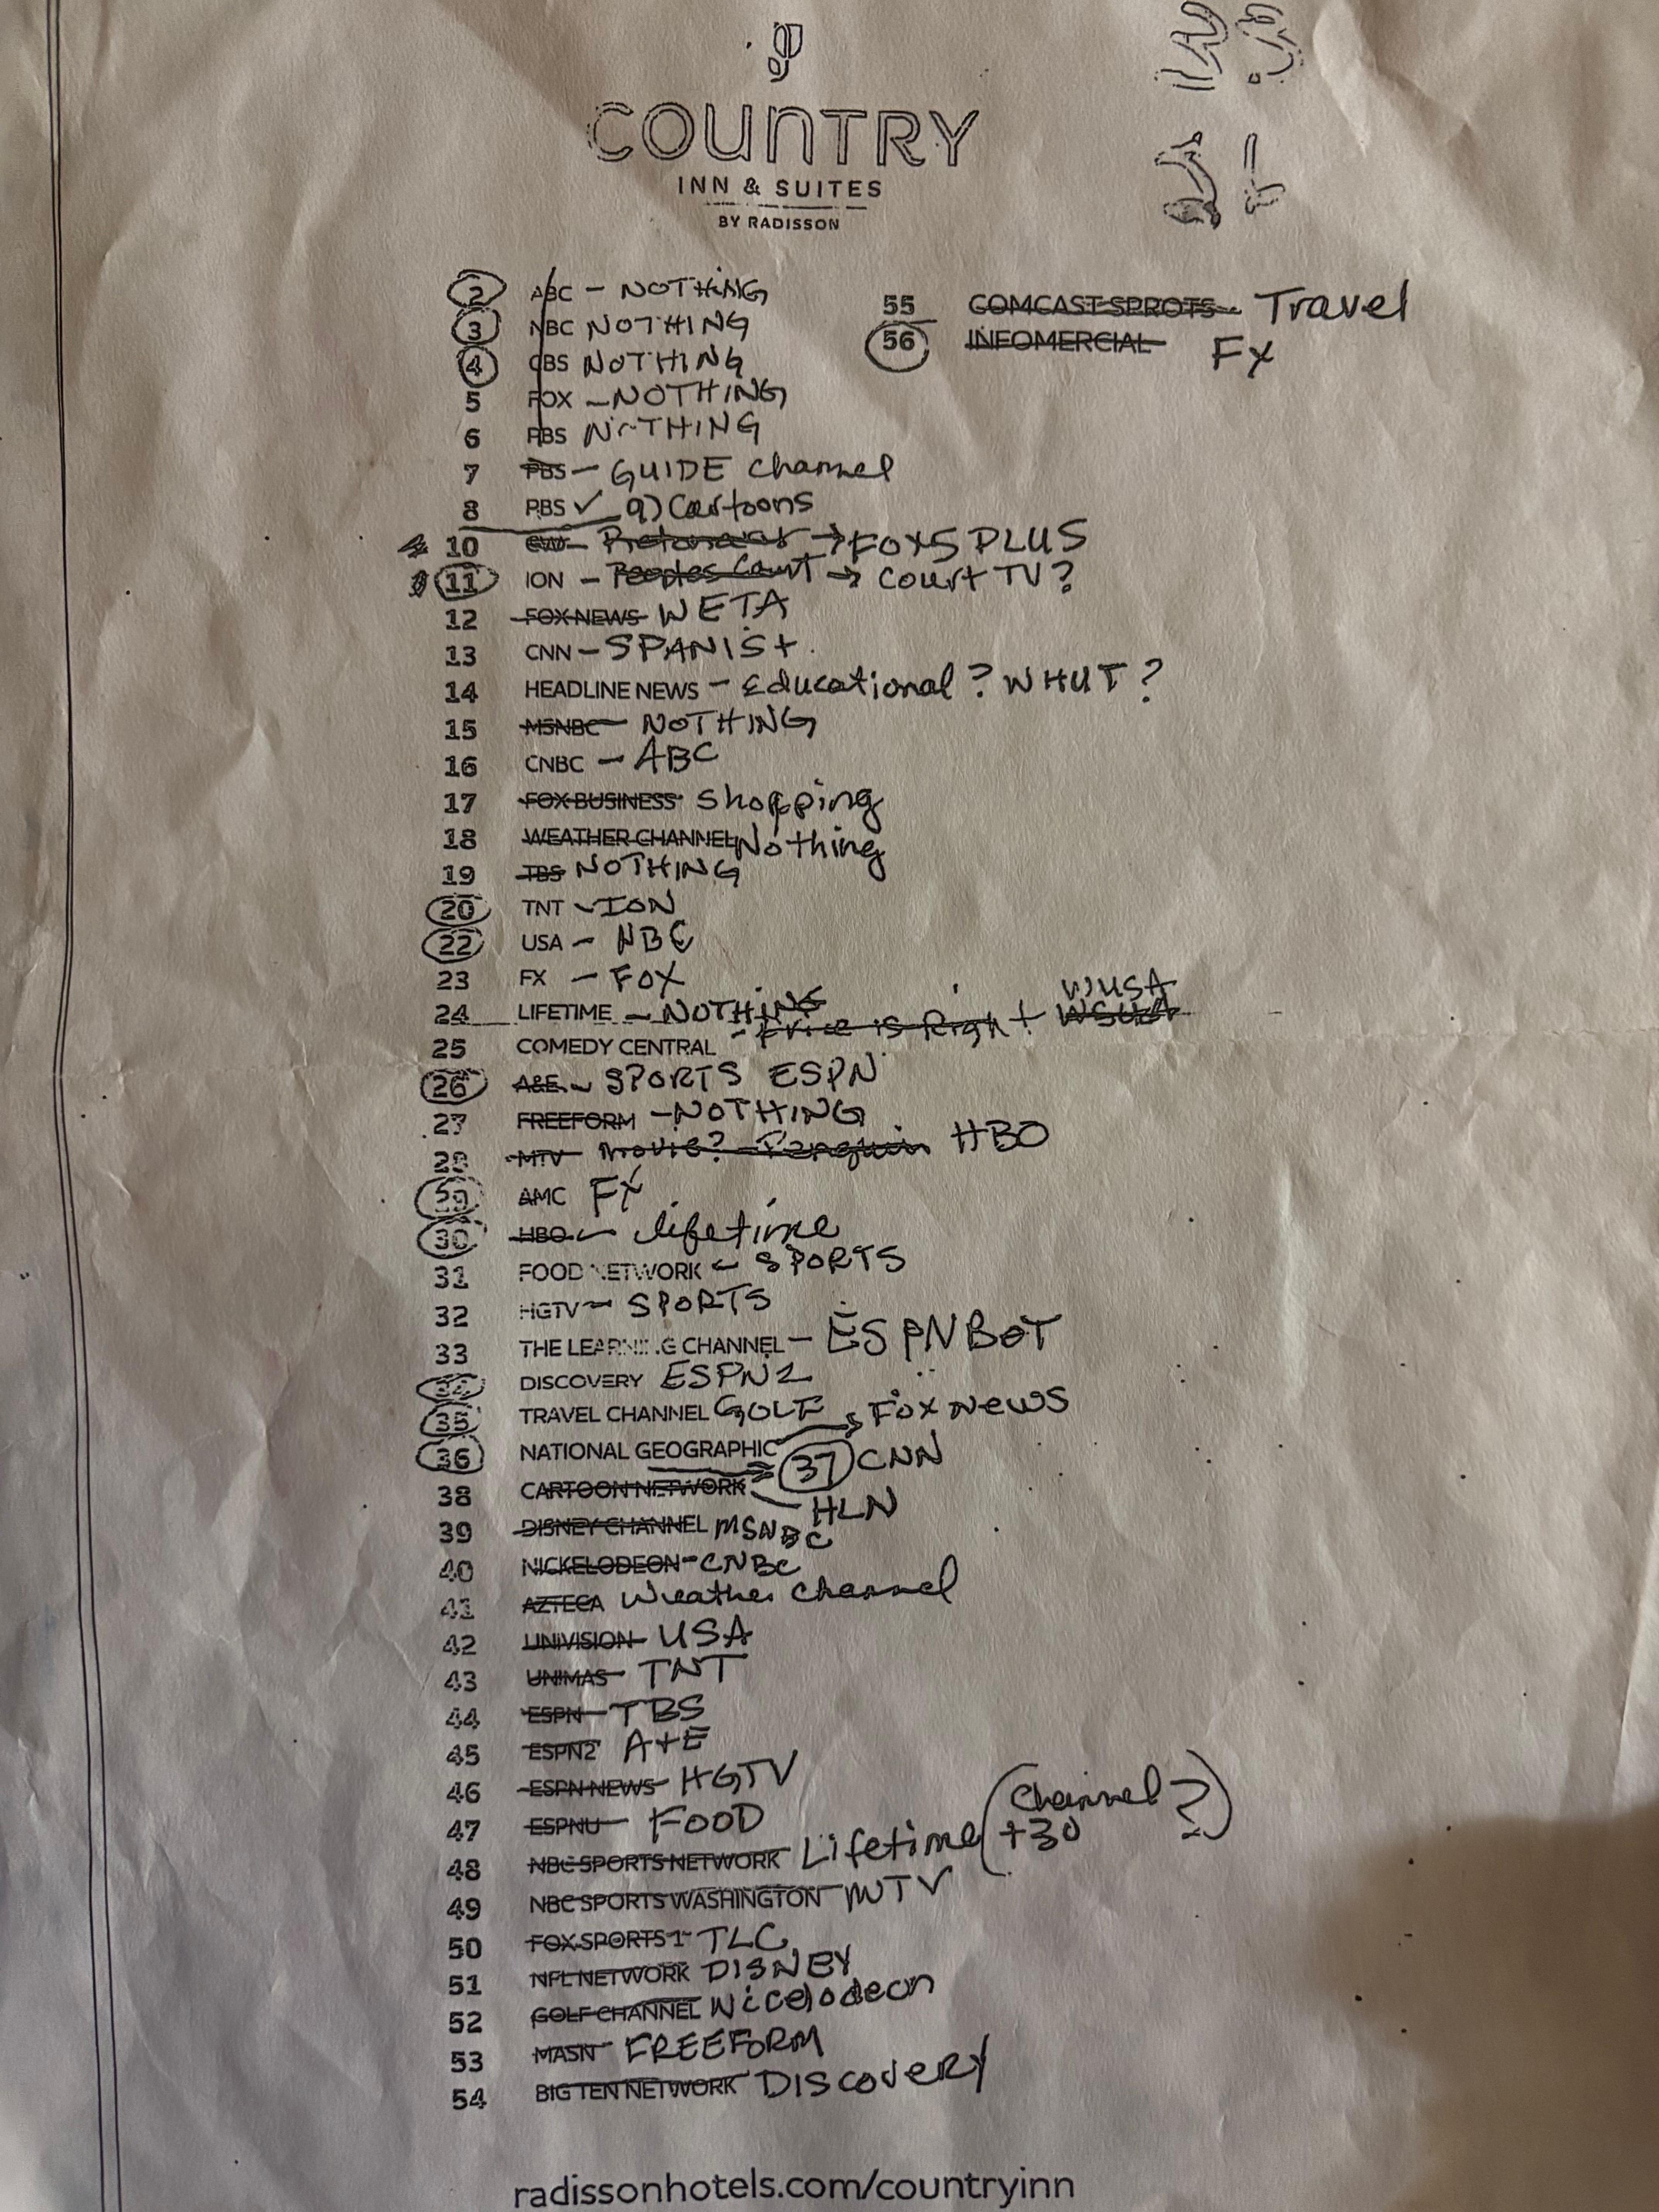 COUNTRY
INN & SUITES
BY RADISSON
2 ABC - NOTHING
3 NBC NOTHING
4 CBS NOTHING
5 FOX - NOTHING
6 PBS NOTHING
7 PBS - GUIDE channel
8 PBS ✓ 9) Cartoons
10 CW - → FOX5 PLUS
11 ION - Peoples Court → Court TV?
12 FOX NEWS WETA
13 CNN - SPANISH
14 HEADLINE NEWS - Educational? WHUT?
15 MSNBC - NOTHING
16 CNBC - ABC
17 FOX BUSINESS Shopping
18 WEATHER CHANNEL Nothing
19 TBS NOTHING
20 TNT - ION
22 USA - NBC
23 FX - FOX
24 LIFETIME - NOTHING
25 COMEDY CENTRAL - Price is Right WUSA
26 A&E - SPORTS ESPN
27 FREEFORM - NOTHING
28 MTV - movie? Penguin HBO
29 AMC FX
30 HBO - lifetime
31 FOOD NETWORK - SPORTS
32 HGTV - SPORTS
33 THE LEARNING CHANNEL - ESPN
34 DISCOVERY ESPN2
35 TRAVEL CHANNEL GOLF
36 NATIONAL GEOGRAPHIC → FOX News
37 CNN
38 CARTOON NETWORK - HLN
39 DISNEY CHANNEL MSNBC
40 NICKELODEON - CNBC
41 AZTECA Weather Channel
42 UNIVISION - USA
43 UNIMAS - TNT
44 ESPN - TBS
45 ESPN2 A+E
46 ESPN NEWS - HGTV
47 ESPNU - FOOD
48 NBC SPORTS NETWORK Lifetime (Channel +30 ?)
49 NBC SPORTS WASHINGTON - MTV
50 FOX SPORTS 1 - TLC
51 NFL NETWORK DISNEY
52 GOLF CHANNEL Nicelodeon
53 MASN - FREEFORM
54 BIG TEN NETWORK DISCOVERY
55 COMCAST SPROTS - Travel
56 INFOMERCIAL FX
radissonhotels.com/countryinn